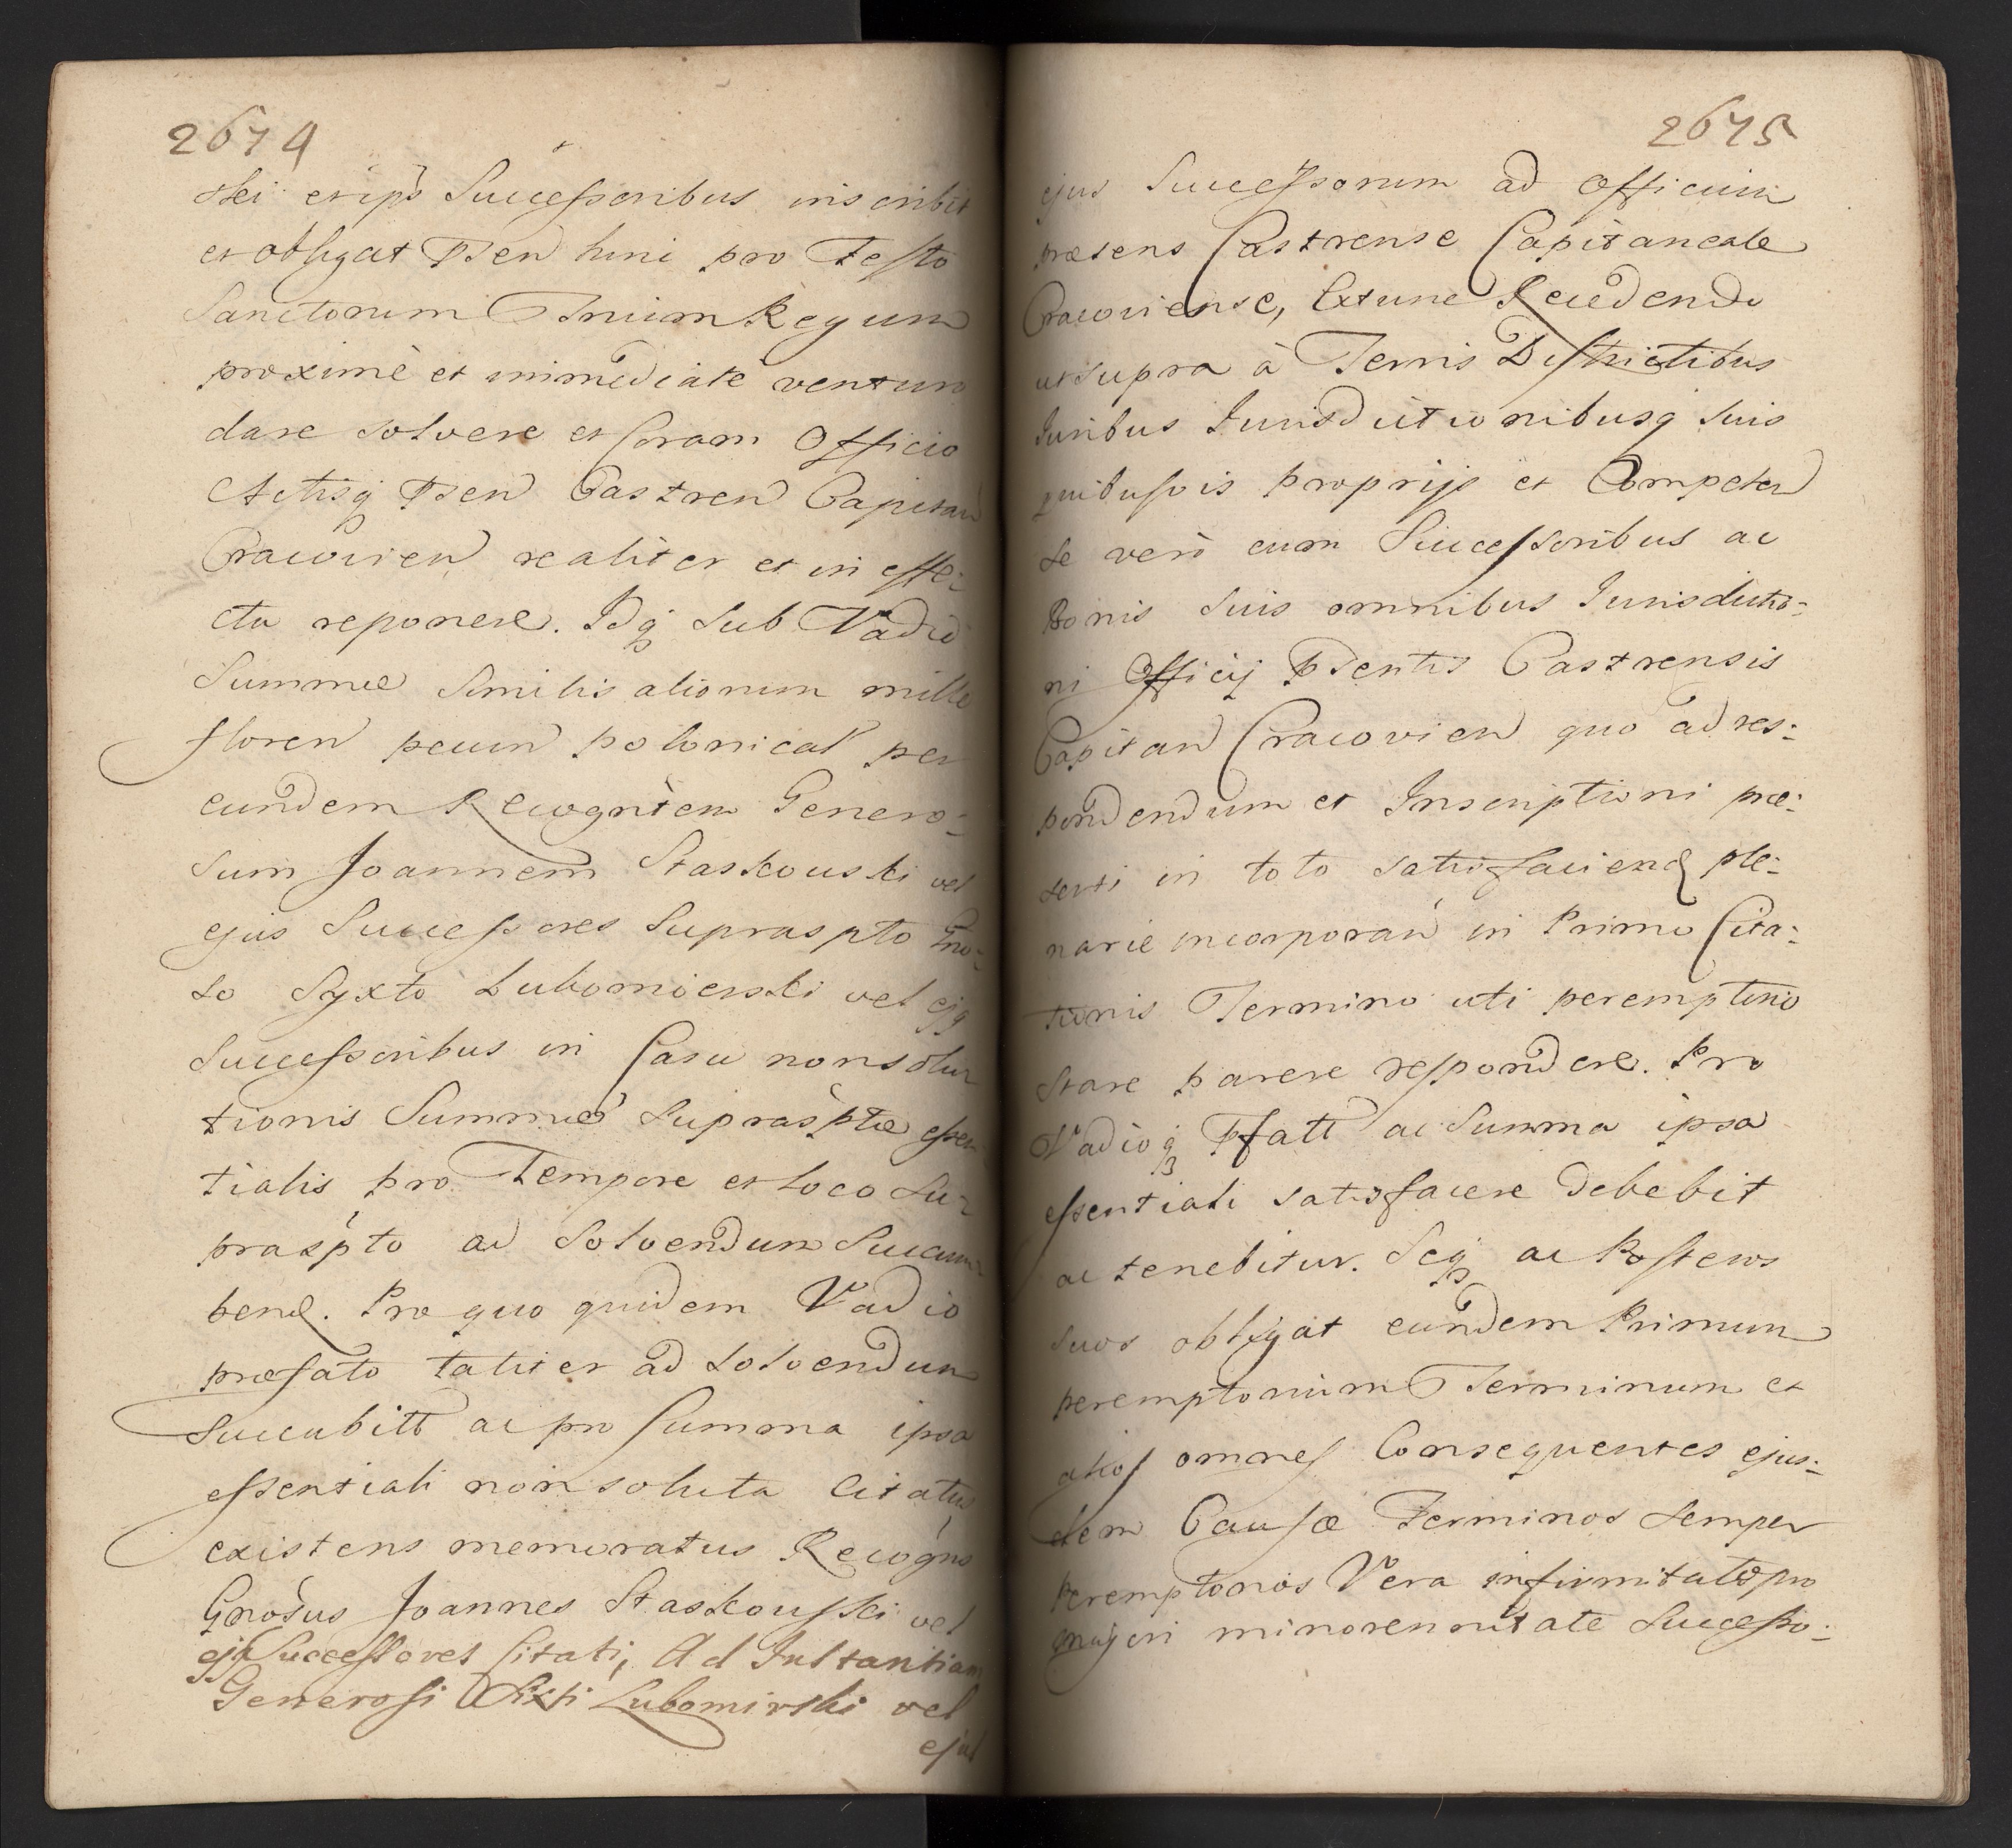 2674
ski et ips Successoribus inscribit
et obligat Psen hinc pro Festo
Sanctorum Trium Regum
proximè et immediate venturo
dare solvere et Coram Officio
Actisq Psen Castren Capitan
Cracovien realiter et in effe-
ctu reponere. Idq sub Vadio
Summæ similis aliorum mille
floren pecun polonical per
eundem Recogntem Genero-
sum Joannem Staskouski vel
ejus Successores supraspto Gno-
so Syxto Lubomierski vel ejq
Successoribus in Casu nonsolu-
tionis Summæ supraspta essen-
tialis pro Tempore et Loco su-
praspto ad solvendum Succum-
bend. Pro quo quidem Vadio
præfato taliter ad solvendum
succubitt ac pro summa ipsa
essentiali non soluta Citatus
existens memoratus Recogns
Gnosus Joannes Staskouski vel
ejq Successores Citati, Ad Instantiam
Generosi Sixti Lubomirski vel
ejus
2675
ejus Successorum ad Officium
præsens Castrense Capitaneale
Cracoviense, Extunc Recedendo
ut supra à Terris Districtibus
Iuribus Iurisdictionibusq suis
quibusvis proprijs et Competen
se verò cum Successoribus ac
Bonis suis omnibus Iurisdictio-
ni Officij Psentis Castrensis
Capitan Cracovien quo ad res-
pondendum et Inscriptioni præ-
senti in toto satisfaciend ple-
narie incorporan in Primo Cita-
tionis Termino uti peremptorio
Stare parere respondere. Pro
Vadioq Pfatt ac Summa ipsa
essentiali satisfacere debebit
ac tenebitur. Seq ac Posteros
suos obligat eundem Primum
peremptorium Terminum et
alios omnes Consequentes ejus-
dem Causæ Terminos semper
peremptorios Vera infirmitate pro
majori minorennitate Successo-